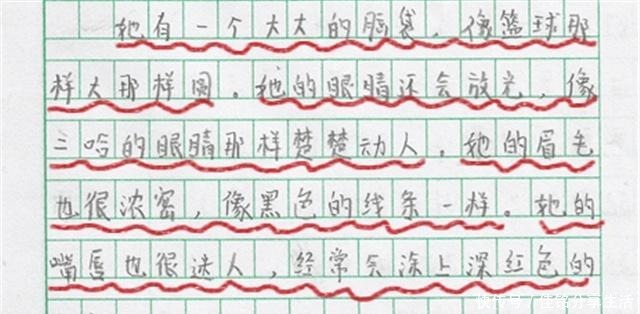 她有一个大大的脑袋，像篮球那
样大那样圆。她的眼睛还会放光，像
二哈的眼睛那样楚楚动人，她的眉毛
也很浓密，像黑色的线条一样。她的
嘴唇也很迷人，经常会涂上深红色的